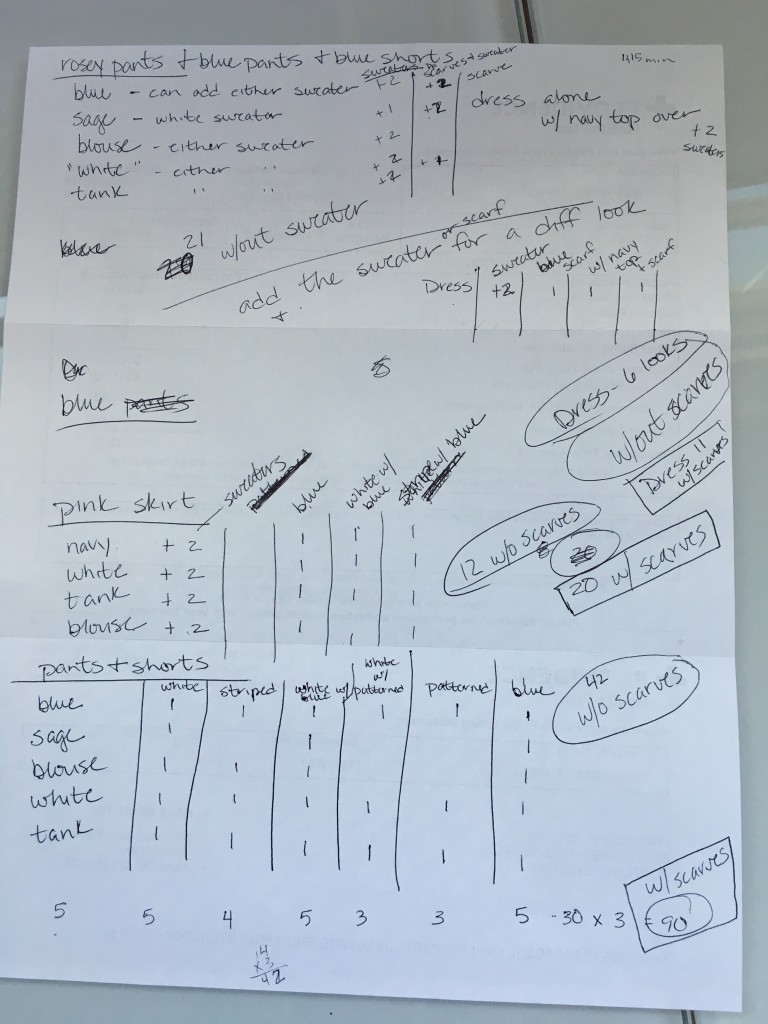 rosey pants + blue pants + blue shorts
1h15 min
sweaters scarves + sweater
scarve
blue - can add either sweater +2 +2
sage - white sweater +1 +2
blouse - either sweater +2
"white" - either " +2 +2
tank " " +2
dress alone
w/ navy top over
+2
sweaters
21 w/out sweater
add the sweater or scarf for a diff look
+
Dress sweater blue scarf w/ navy top + scarf
+2 1 1 1
blue
Dress - 6 looks
w/out scarves
Dress 11
w/ scarves
pink skirt sweaters blue white w/ blue
navy + 2 1 1 1
white + 2 1 1 1
tank + 2 1 1 1
blouse + 2 1 1 1
12 w/o scarves
20 w/ scarves
pants + shorts
white striped white blue w/ white w/ patterned patterned blue
blue 1 1 1 1 1 1
sage 1 1 1
blouse 1 1 1 1
white 1 1 1 1 1 1
tank 1 1 1 1 1 1
42
w/o scarves
5 5 4 5 3 3 5 - 30 x 3 = 90
w/ scarves
14
x 3
42